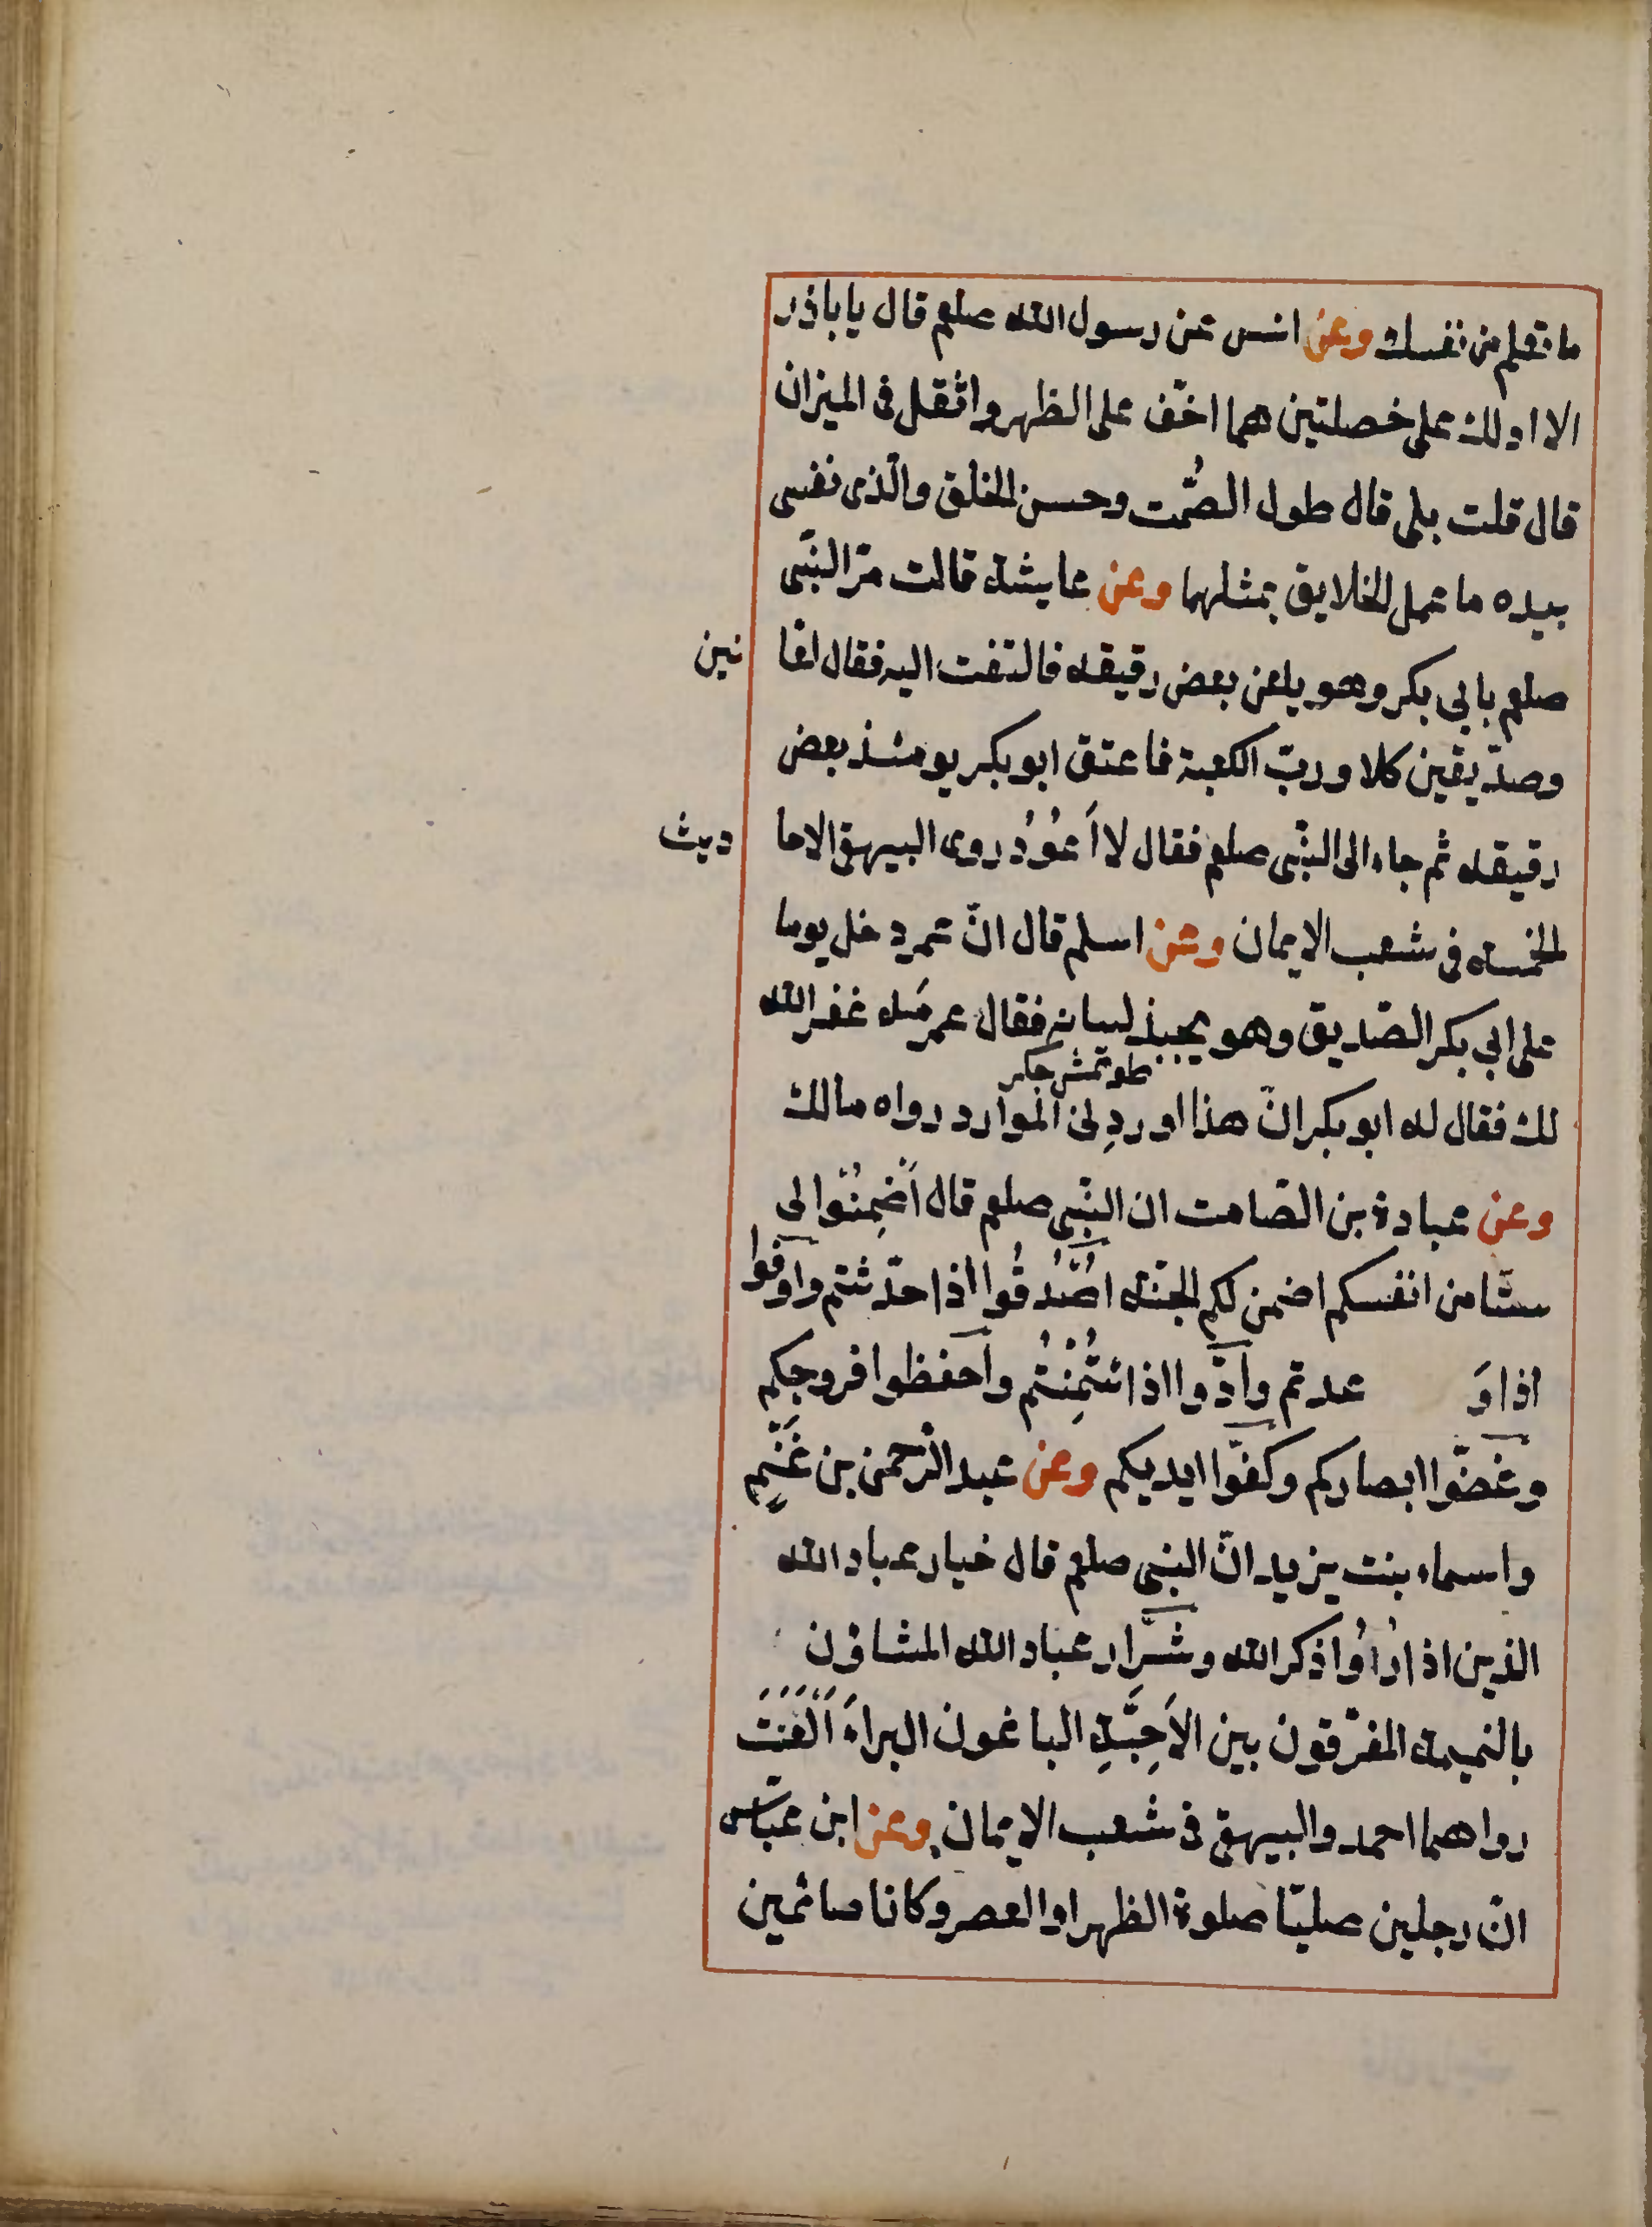 ما تعلم من نفسك وعن انس عن رسول الله صلعم قال يا باذر
الا ادلك على خصلتين هما اخف على الظهر واثقل فى الميزان
قال قلت بلى قال طول الصُّمت وحسن الخلق والّذى نفسى
بيده ما عمل الخلايق بمثلهما وعن عايشة قالت مرّ النبّى
صلعم بابى بكر وهو يلعن بعض رقيقه فالتفت اليه فقال لعّا نين
وصدّيقين كلا وربّ الكعبة فاعتق ابو بكر يومئذ بعض
رقيقه ثم جاء الى النبّى صلعم فقال لا اَعُوُد روى البيهقى الاحا ديث
الخمسة فى شعب الايمان وعن اسلم قال انّ عمر دخل يوما
على ابى بكر الصّديق وهو يجبذ لسانه فقال عمر مَه غفر الله
لك فقال له ابو بكر انّ هذا اوردِنى الموارد رواه مالك
وعن عبادة بن الصّامت ان النبّى صلعم قال اَضْمِنُوا لى
ستّا من انفسكم اضمن لكم الجنّة اُصْدُقُوا اذا حدّثتم واوفوا
اذا وَ عدتم وادّوا اذا ائتُمِنْتُم واحفظوا فروجكم
وغضّوا ابصاركم وكفّوا ايديكم وعن عبد الرّحمن بن غَنْم
واسماء بنت يزيد انّ النبى صلعم قال خيار عباد الله
الذين اذا رُاوُا ذكر الله وشَرار عباد الله المشاؤن
بالنميمة المفرّقون بين الاَحِبَّةِ الباغون البراءَ اَلْعَنَتَ
رواهما احمد والبيهقى فى شعب الايمان وعن ابن عبّاس
انّ رجلين صليّا صلوة الظهر او العصر وكانا صائمين